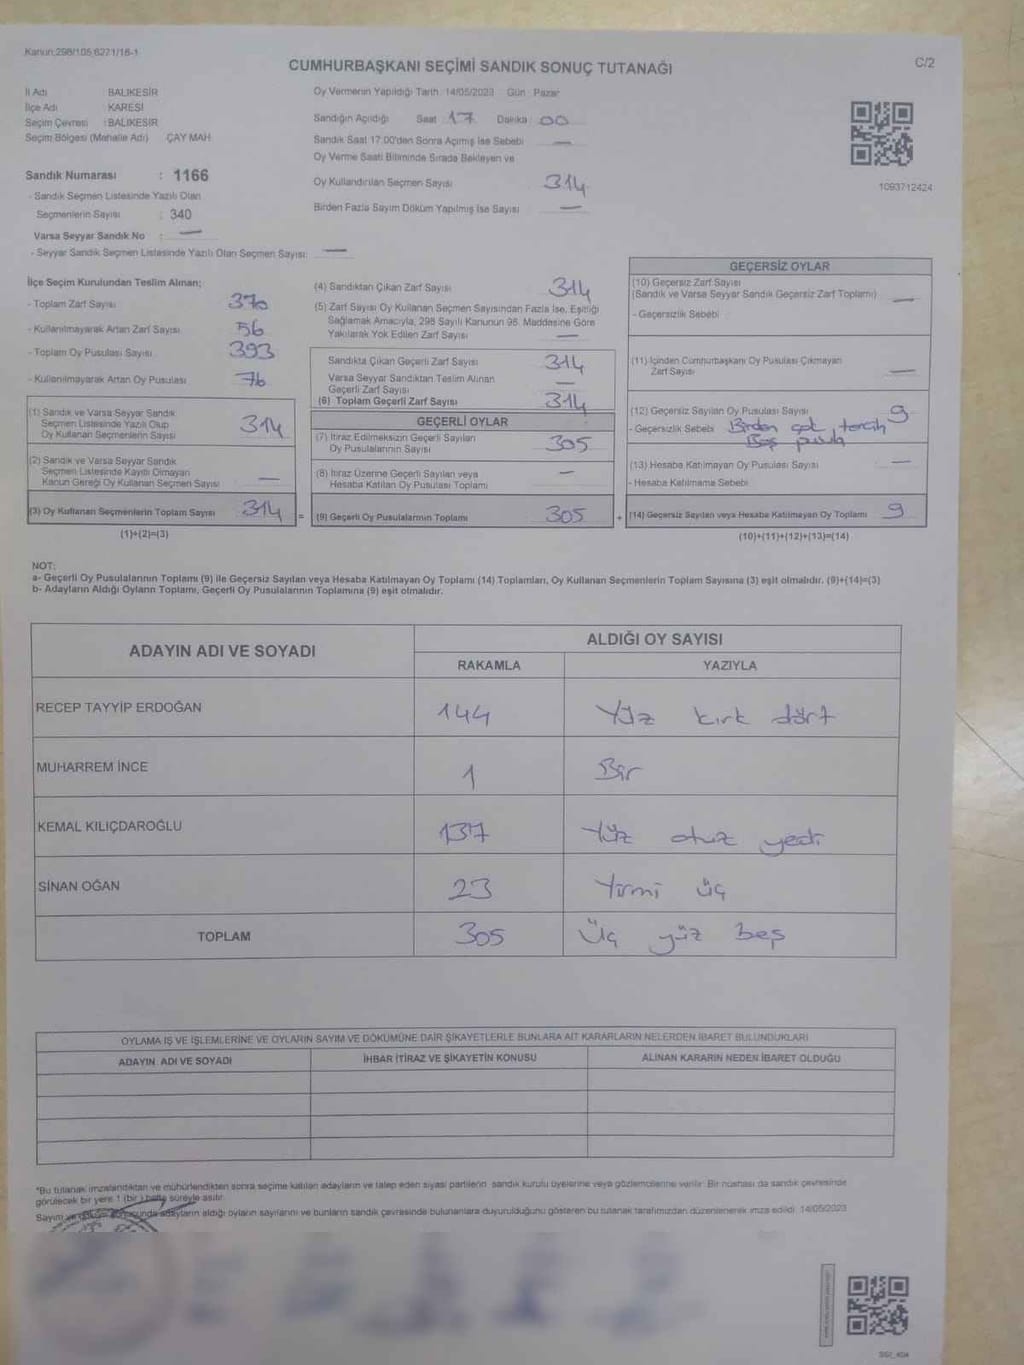 Kanun:298/105,6271/16-1
CUMHURBAŞKANI SEÇİMİ SANDIK SONUÇ TUTANAĞI
C/2
İl Adı : BALIKESİR
İlçe Adı : KARESİ
Seçim Çevresi : BALIKESİR
Seçim Bölgesi (Mahalle Adı) ÇAY MAH.
Sandık Numarası : 1166
- Sandık Seçmen Listesinde Yazılı Olan
Seçmenlerin Sayısı : 340
Varsa Seyyar Sandık No : —
- Seyyar Sandık Seçmen Listesinde Yazılı Olan Seçmen Sayısı: —
Oy Vermenin Yapıldığı Tarih :14/05/2023 Gün : Pazar
Sandığın Açıldığı Saat 17 Dakika 00
Sandık Saat 17:00'den Sonra Açımış İse Sebebi —
Oy Verme Saati Bitiminde Sırada Bekleyen ve
Oy Kullandırılan Seçmen Sayısı 314
Birden Fazla Sayım Döküm Yapılmış ise Sayısı —
1093712424
İlçe Seçim Kurulundan Teslim Alınan;
- Toplam Zarf Sayısı 370
- Kullanılmayarak Artan Zarf Sayısı 56
- Toplam Oy Pusulası Sayısı 393
- Kullanılmayarak Artan Oy Pusulası 76
(1) Sandık ve Varsa Seyyar Sandık
Seçmen Listesinde Yazılı Olup
Oy Kullanan Seçmenlerin Sayısı 314
(2) Sandık ve Varsa Seyyar Sandık
Seçmen Listesinde Kayıtlı Olmayan
Kanun Gereği Oy Kullanan Seçmen Sayısı —
(3) Oy Kullanan Seçmenlerin Toplam Sayısı 314 =
(1)+(2)=(3)
(4) Sandıktan Çıkan Zarf Sayısı 314
(5) Zarf Sayısı Oy Kullanan Seçmen Sayısından Fazla İse, Eşitliği
Sağlamak Amacıyla, 298 Sayılı Kanunun 98. Maddesine Göre
Yakılarak Yok Edilen Zarf Sayısı —
Sandıkta Çıkan Geçerli Zarf Sayısı 314
Varsa Seyyar Sandıktan Teslim Alınan
Geçerli Zarf Sayısı —
(6) Toplam Geçerli Zarf Sayısı 314
GEÇERLİ OYLAR
(7) İtiraz Edilmeksizin Geçerli Sayılan
Oy Pusulalarının Sayısı 305
(8) İtiraz Üzerine Geçerli Sayılan veya
Hesaba Katılan Oy Pusulası Toplamı —
(9) Geçerli Oy Pusulalarının Toplamı 305 +
GEÇERSİZ OYLAR
(10) Geçersiz Zarf Sayısı
(Sandık ve Varsa Seyyar Sandık Geçersiz Zarf Toplamı) —
- Geçersizlik Sebebi
(11) İçinden Cumhurbaşkanı Oy Pusulası Çıkmayan
Zarf Sayısı —
(12) Geçersiz Sayılan Oy Pusulası Sayısı 9
- Geçersizlik Sebebi Birden çok tercih
Boş pusula
(13) Hesaba Katılmayan Oy Pusulası Sayısı —
- Hesaba Katılmama Sebebi
(14) Geçersiz Sayılan veya Hesaba Katılmayan Oy Toplamı 9
(10)+(11)+(12)+(13)=(14)
NOT:
a- Geçerli Oy Pusulalarının Toplamı (9) ile Geçersiz Sayılan veya Hesaba Katılmayan Oy Toplamı (14) Toplamları, Oy Kullanan Seçmenlerin Toplam Sayısına (3) eşit olmalıdır. (9)+(14)=(3)
b- Adayların Aldığı Oyların Toplamı, Geçerli Oy Pusulalarının Toplamına (9) eşit olmalıdır.
ADAYIN ADI VE SOYADI
ALDIĞI OY SAYISI
RAKAMLA YAZIYLA
RECEP TAYYİP ERDOĞAN 144 Yüz kırk dört
MUHARREM İNCE 1 Bir
KEMAL KILIÇDAROĞLU 137 Yüz otuz yedi
SİNAN OĞAN 23 Yirmi üç
TOPLAM 305 Üç yüz beş
OYLAMA İŞ VE İŞLEMLERİNE VE OYLARIN SAYIM VE DÖKÜMÜNE DAİR ŞİKAYETLERLE BUNLARA AİT KARARLARIN NELERDEN İBARET BULUNDUKLARI
ADAYIN ADI VE SOYADI İHBAR İTİRAZ VE ŞİKAYETİN KONUSU ALINAN KARARIN NEDEN İBARET OLDUĞU
*Bu tutanak imzalandıktan ve mühürlendikten sonra seçime katılan adayların ve talep eden siyasi partilerin sandık kurulu üyelerine veya gözlemcilerine verilir. Bir nüshası da sandık çevresinde
görülecek bir yere 1 (bir) hafta süreyle asılır.
Sayım ve döküm sonucunda adayların aldığı oyların sayılarını ve bunların sandık çevresinde bulunanlara duyurulduğunu gösteren bu tutanak tarafımızdan düzenlenerek imza edildi. 14/05/2023